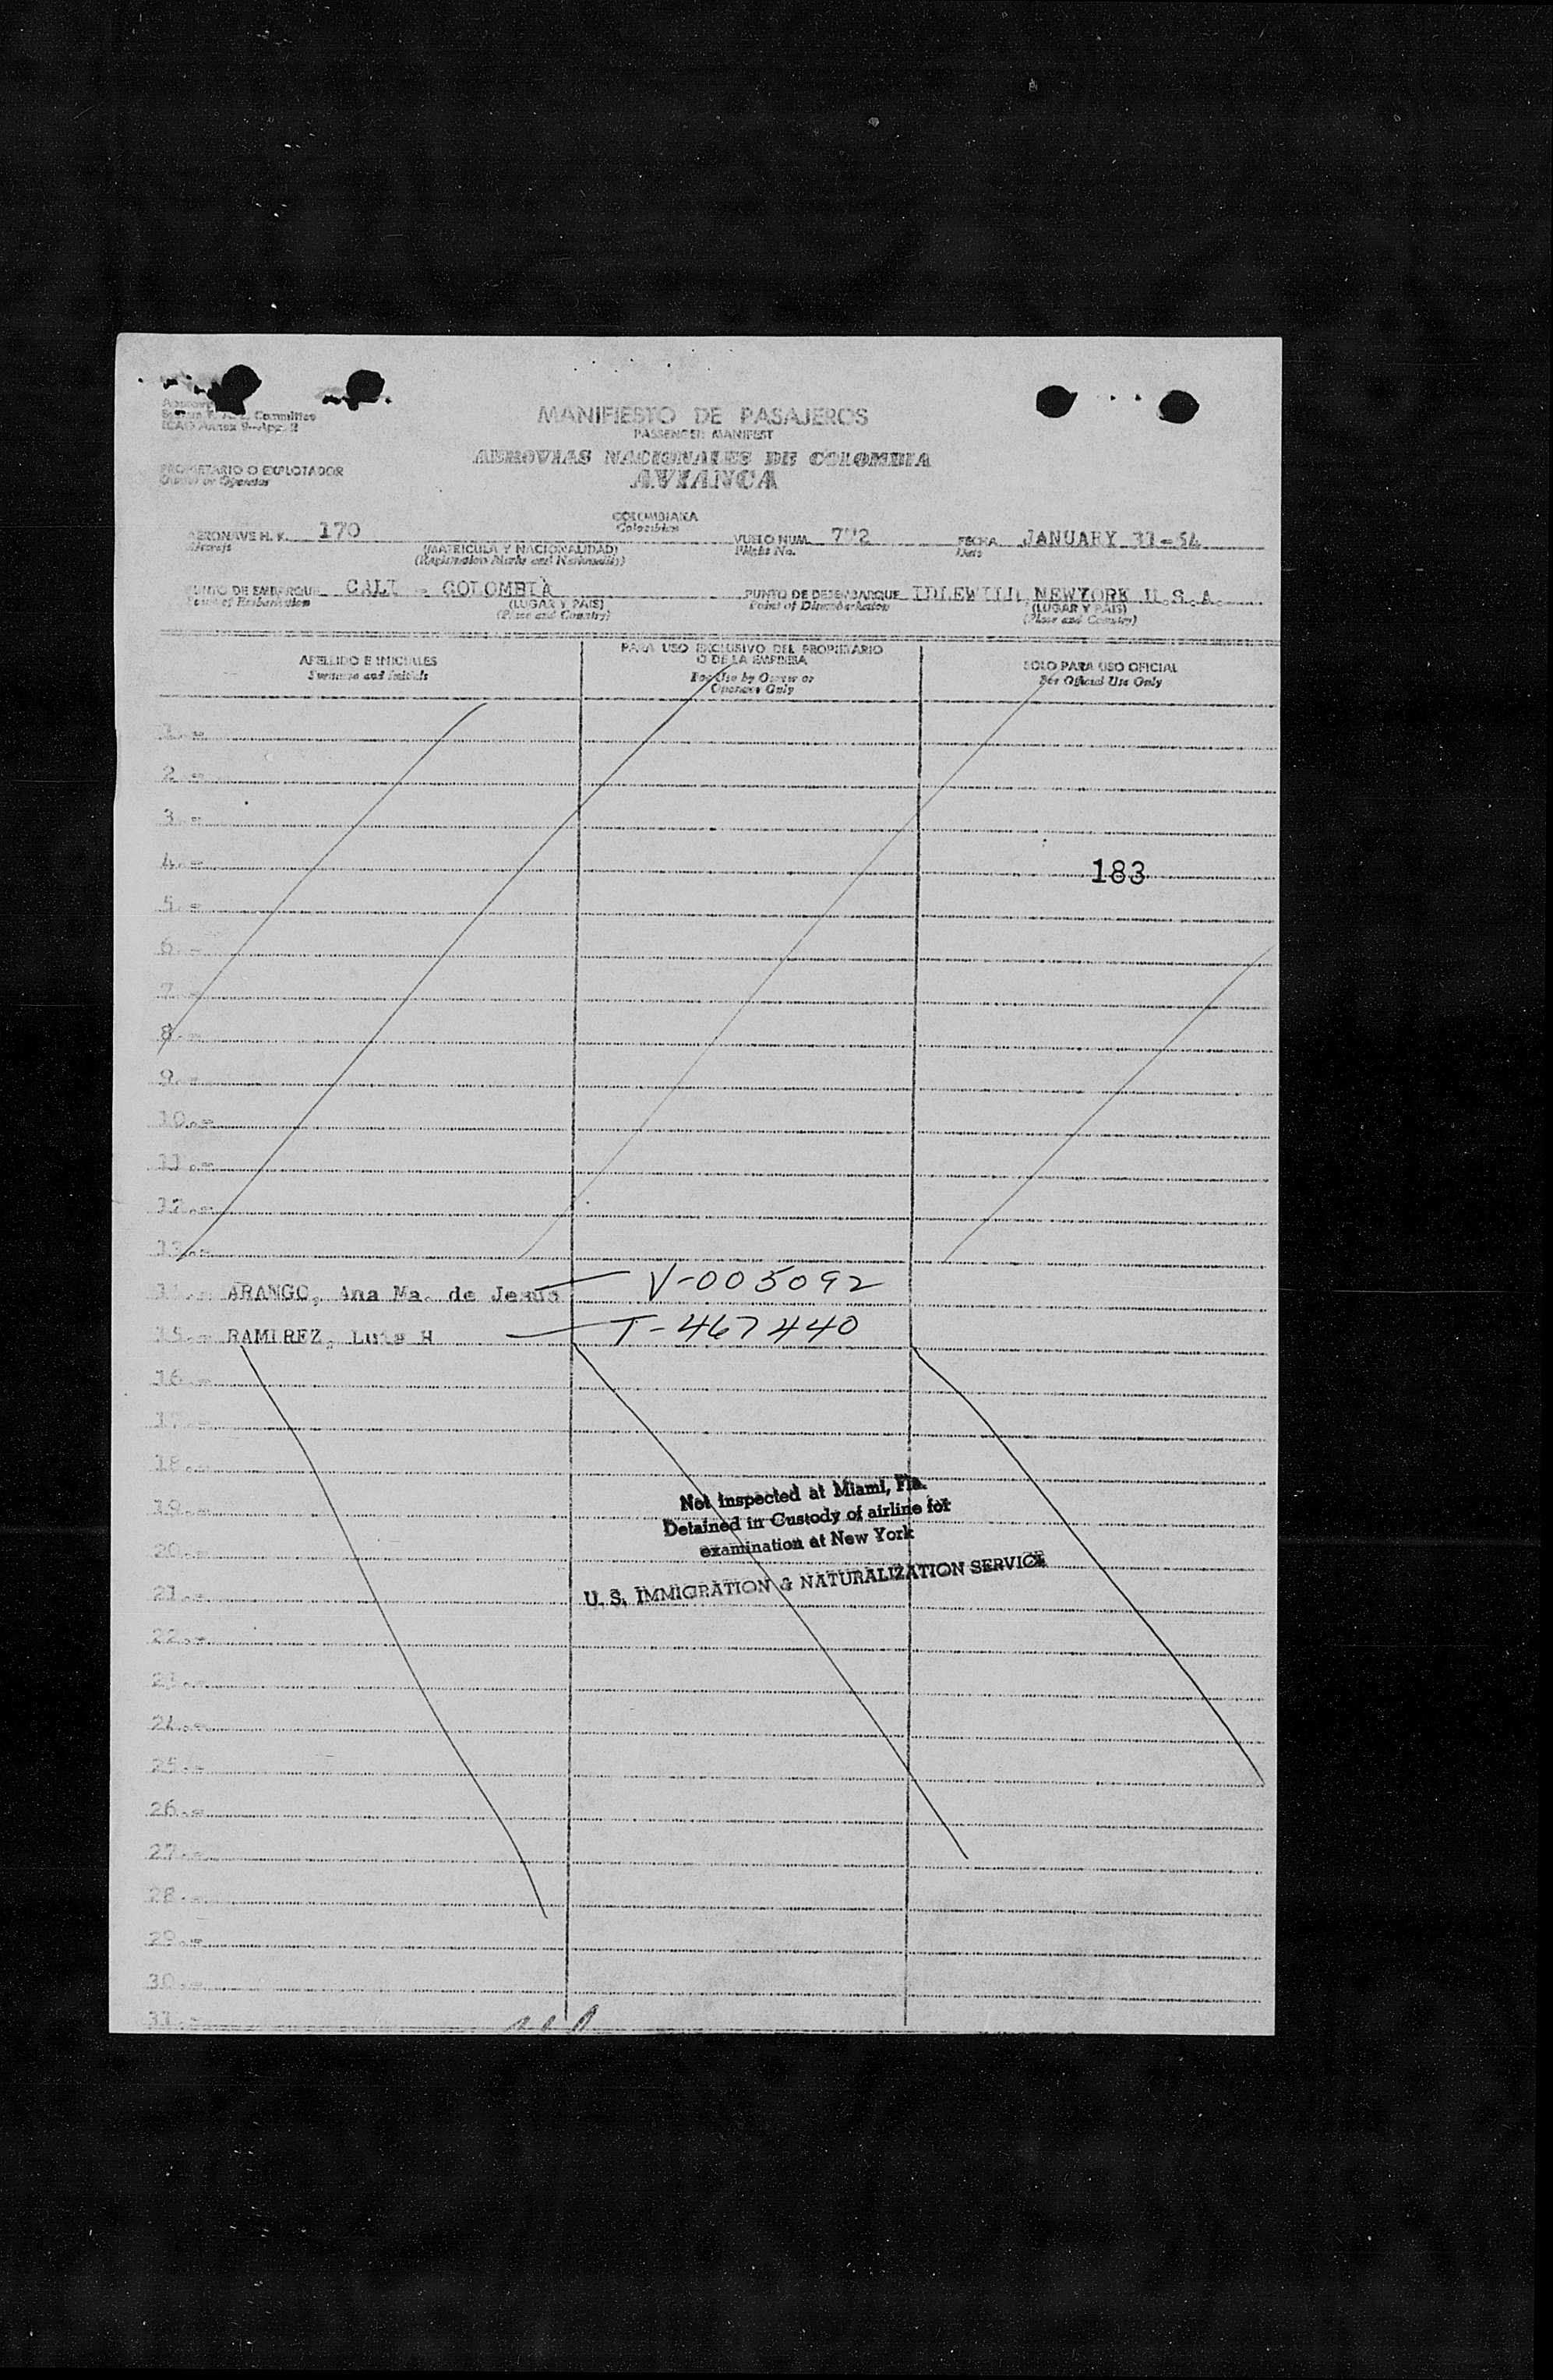 Committee
ICAO Annex 9-App. 2
MANIFIESTO DE PASAJEROS
PASSENGER MANIFEST
AEROVIAS NACIONALES DE COLOMBIA
AVIANCA
PROPIETARIO O EXPLOTADOR
Owner or Operator
COLOMBIANA
Colombian
AERONAVE H. K. 170
Aircraft
(MATRICULA Y NACIONALIDAD)
(Registration Marks and Nationality)
VUELO NUM.
Flight No.
FECHA JANUARY
Date
PUNTO DE EMBARQUE CALI - COLOMBIA
Point of Embarkation
(LUGAR Y PAIS)
(Place and Country)
PUNTO DE DESEMBARQUE IDLEWILD, NEWYORK U.S.A.
Point of Disembarkation
(LUGAR Y PAIS)
(Place and Country)
APELLIDO E INICIALES
Surname and Initials
PARA USO EXCLUSIVO DEL PROPIETARIO
O DE LA EMPRESA
For Use by Owner or
Operator Only
SOLO PARA USO OFICIAL
For Official Use Only
1.-
2.-
3.-
4.- 183
5.-
6.-
7.-
8.-
9.-
10.-
11.-
12.-
13.-
14.- ARANGO, Ana Ma. de Jesus V-005092
15.- RAMIREZ, Luis H T-467440
16.-
17.-
18.-
19.-
20.-
21.-
22.-
23.-
24.-
25.-
26.-
27.-
28.-
29.-
30.-
31.-
Not inspected at Miami, Fla.
Detained in Custody of airline for
examination at New York
U. S. IMMIGRATION & NATURALIZATION SERVICE